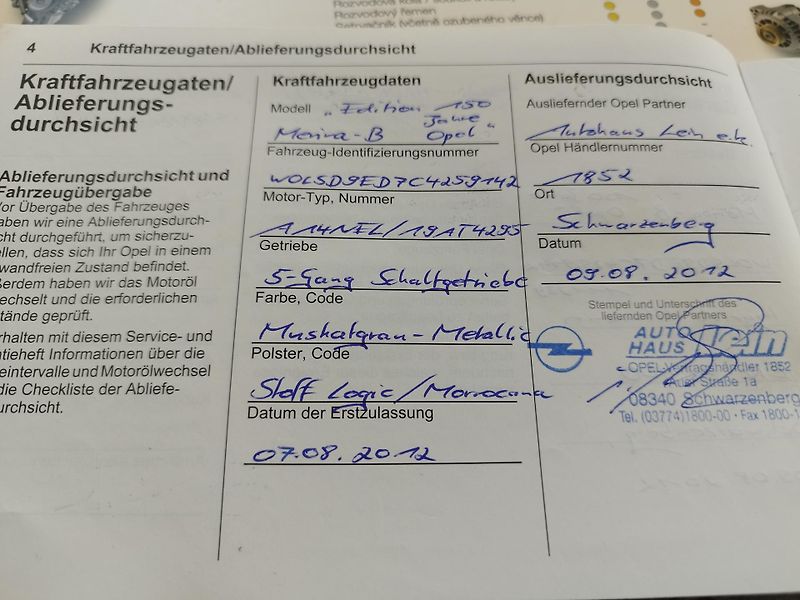 Rozvodový řemen
Setrvačník (včetně ozubeného věnce)
4 Kraftfahrzeugaten/Ablieferungsdurchsicht
Kraftfahrzeugaten/
Ablieferungs-
durchsicht
Ablieferungsdurchsicht und
Fahrzeugübergabe
Vor Übergabe des Fahrzeuges
aben wir eine Ablieferungsdurch-
cht durchgeführt, um sicherzu-
ellen, dass sich Ihr Opel in einem
wandfreien Zustand befindet.
ßerdem haben wir das Motoröl
echselt und die erforderlichen
tände geprüft.
rhalten mit diesem Service- und
ntieheft Informationen über die
eintervalle und Motorölwechsel
die Checkliste der Abliefe-
durchsicht.
Kraftfahrzeugdaten
Modell „Edition 150
Jahre
Meriva-B Opel"
Fahrzeug-Identifizierungsnummer
W0LSD9ED7C4259142
Motor-Typ, Nummer
A14NEL/19AT4295
Getriebe
5-Gang Schaltgetriebe
Farbe, Code
Muskatgrau-Metallic
Polster, Code
Stoff Logic/Morrocana
Datum der Erstzulassung
07.08.2012
Auslieferungsdurchsicht
Ausliefernder Opel Partner
Autohaus Lein e.k.
Opel Händlernummer
1852
Ort
Schwarzenberg
Datum
09.08.2012
Stempel und Unterschrift des
liefernden Opel Partners
AUTO
HAUS lein
OPEL-Vertragshändler 1852
Auer Straße 1a
08340 Schwarzenberg
Tel. (03774)1800-00 · Fax 1800-1